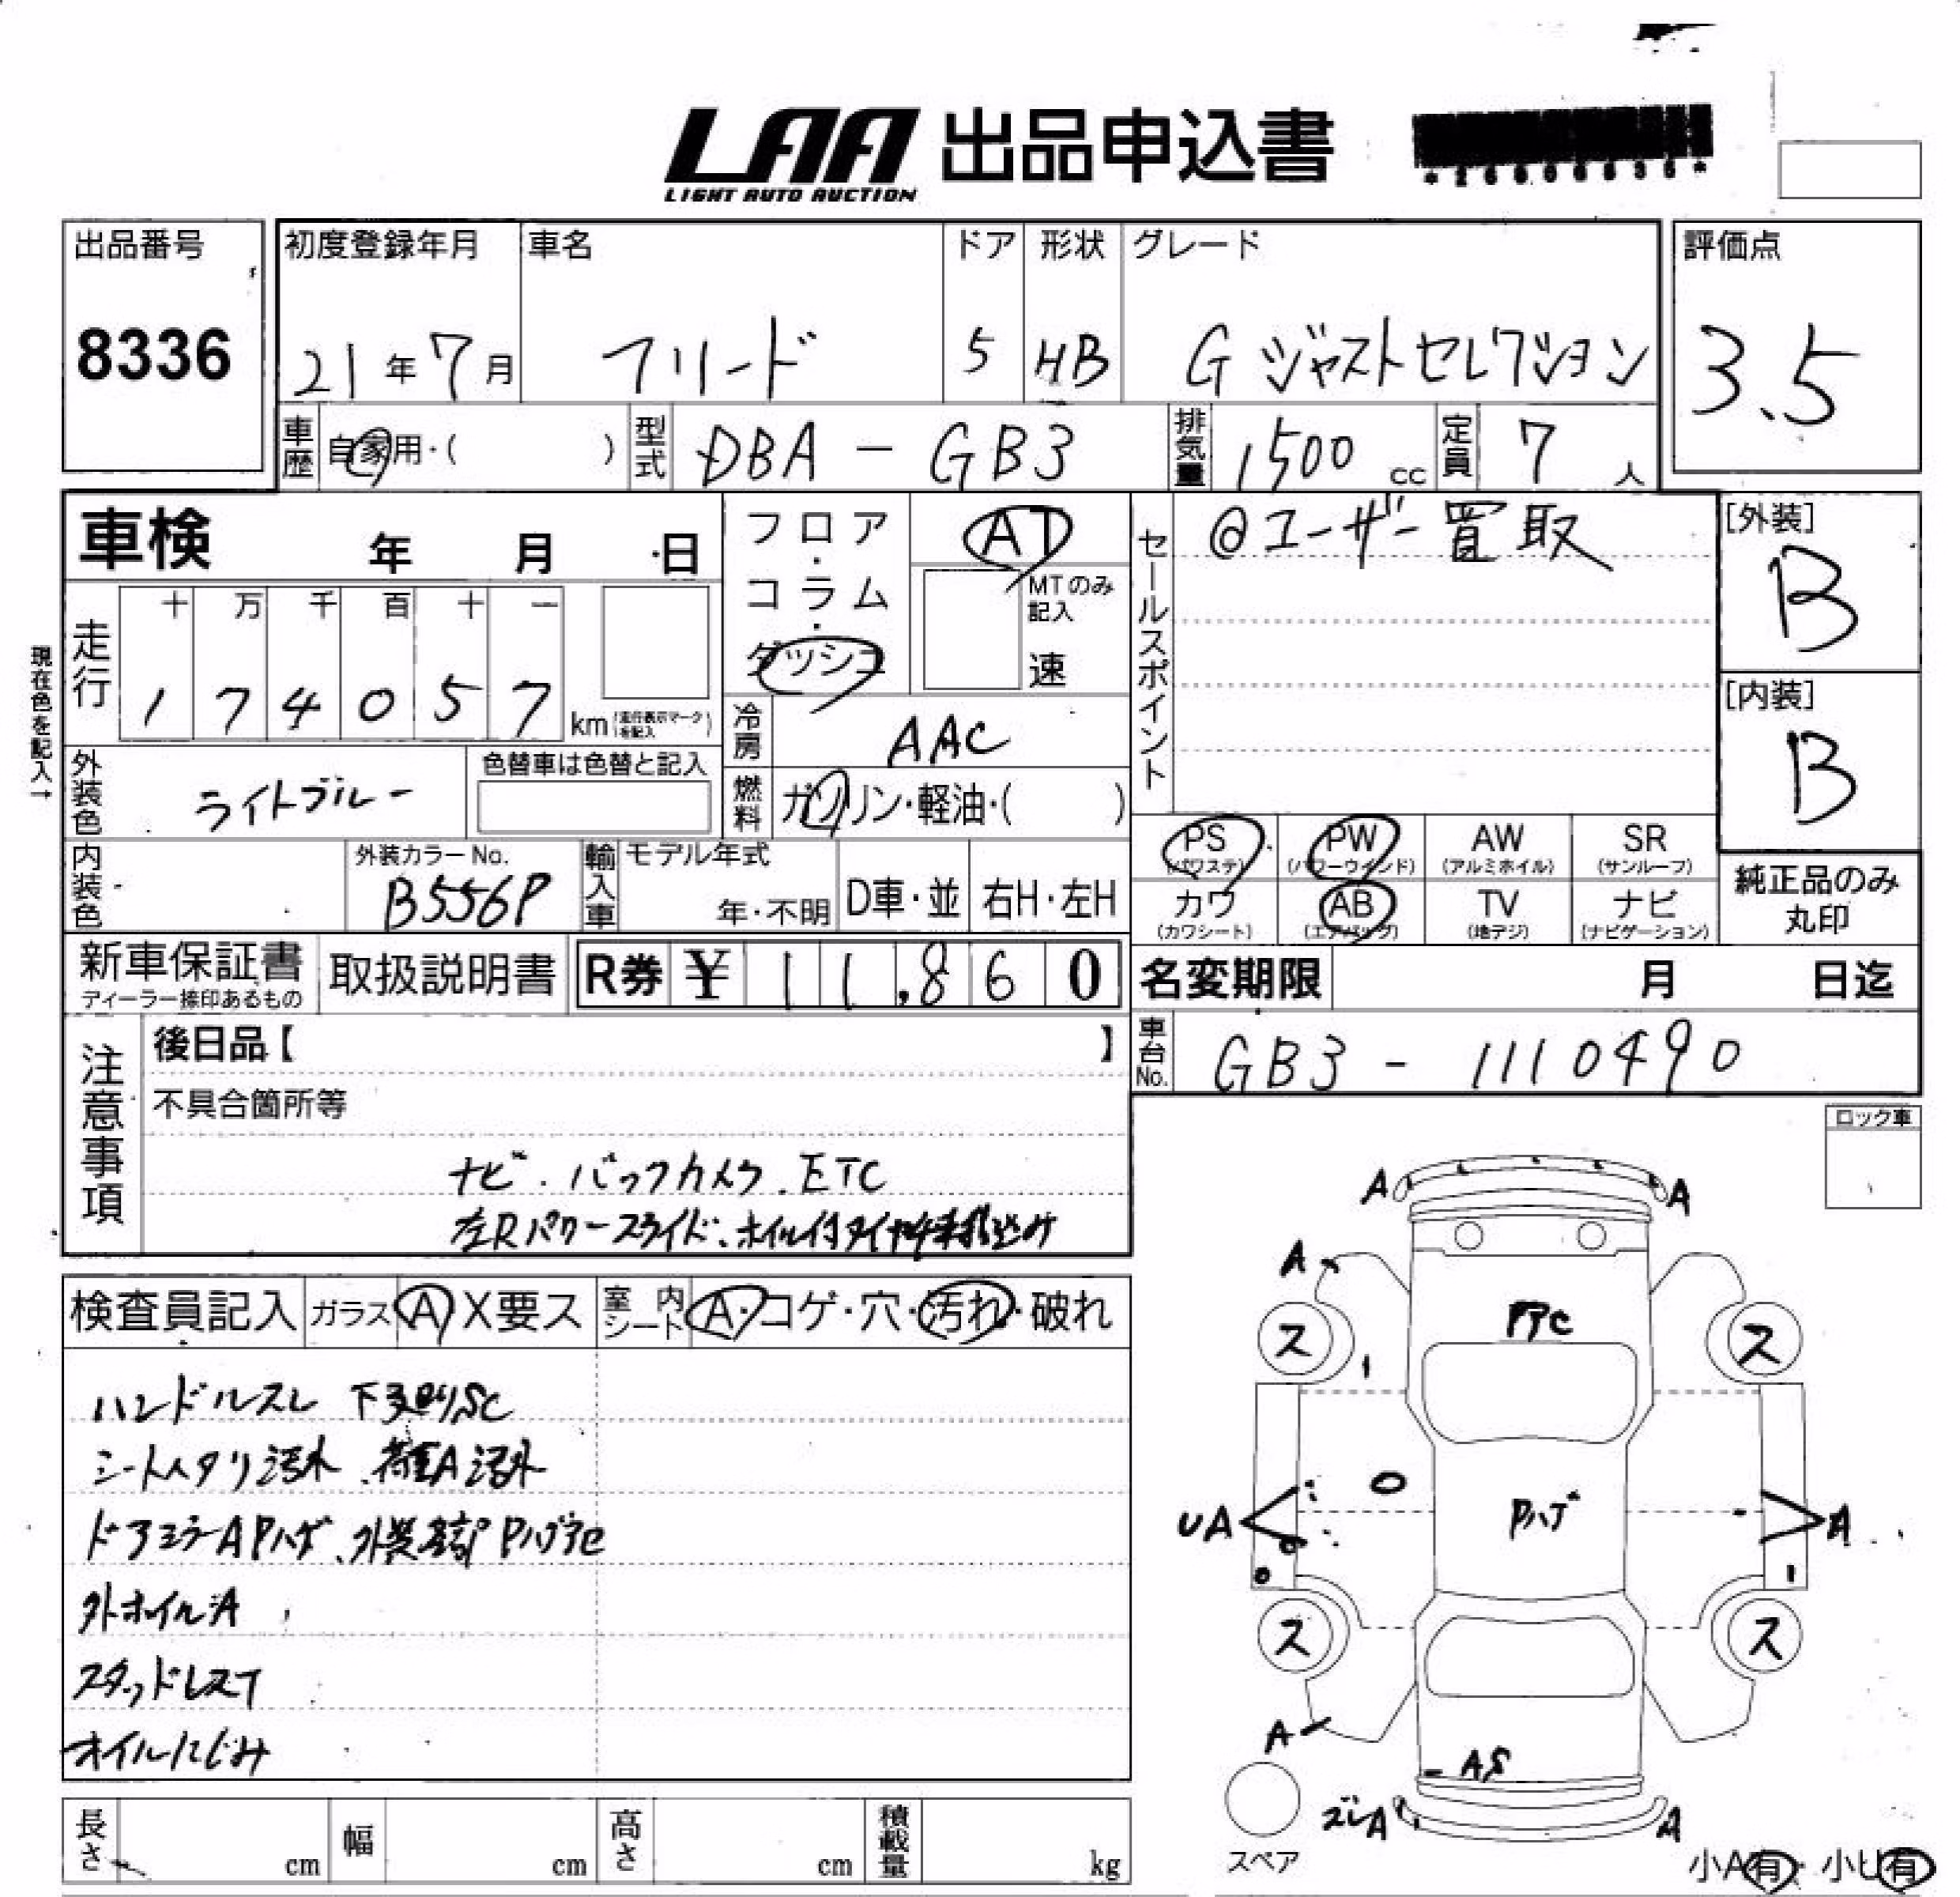 LAA 出品申込書
LIGHT AUTO AUCTION
出品番号
8336
初度登録年月
21年7月
車名
フリード
ドア
5
形状
HB
グレード
G ジャストセレクション
評価点
3.5
車歴
自家用・( )
型式
DBA - GB3
排気量
1500 cc
定員
7 人
車検 年 月 日
フロア・コラム・ダッシュ
AT
MTのみ記入
速
セールスポイント
◎ユーザー買取
[外装]
B
[内装]
B
現在色を記入→
走行
十 万 千 百 十 一
1 7 4 0 5 7 km
(走行表示マークを記入)
冷房
AAC
外装色
ライトブルー
色替車は色替と記入
燃料
ガソリン・軽油・( )
内装色
外装カラーNo.
B556P
輸入車
モデル年式
年・不明
D車・並
右H・左H
PS (パワステ)
PW (パワーウインド)
AW (アルミホイル)
SR (サンルーフ)
カワ (カワシート)
AB (エアバッグ)
TV (地デジ)
ナビ (ナビゲーション)
純正品のみ丸印
新車保証書
ディーラー捺印あるもの
取扱説明書
R券 ¥ 11,860
名変期限 月 日迄
注意事項
後日品【 】
不具合箇所等
ナビ.バックカメラ.ETC
左Rパワースライド、ホイル付タイヤ4本積込み
車台No.
GB3 - 1110490
ロック車
検査員記入
ガラス A X要ス
室内シート A・コゲ・穴・汚れ・破れ
ハンドルスレ 下廻りSC
シートヘタリ汚れ、荷室A汚れ
ドアミラーAPハゲ、
外ホイルA
スタッドレスT
オイルにじみ
A A
A
ス ス
1
O
Pハゲ
UA A
1
ス ス
A
A
A
スペア
小A有・小U有
長さ cm
幅 cm
高さ cm
積載量 kg